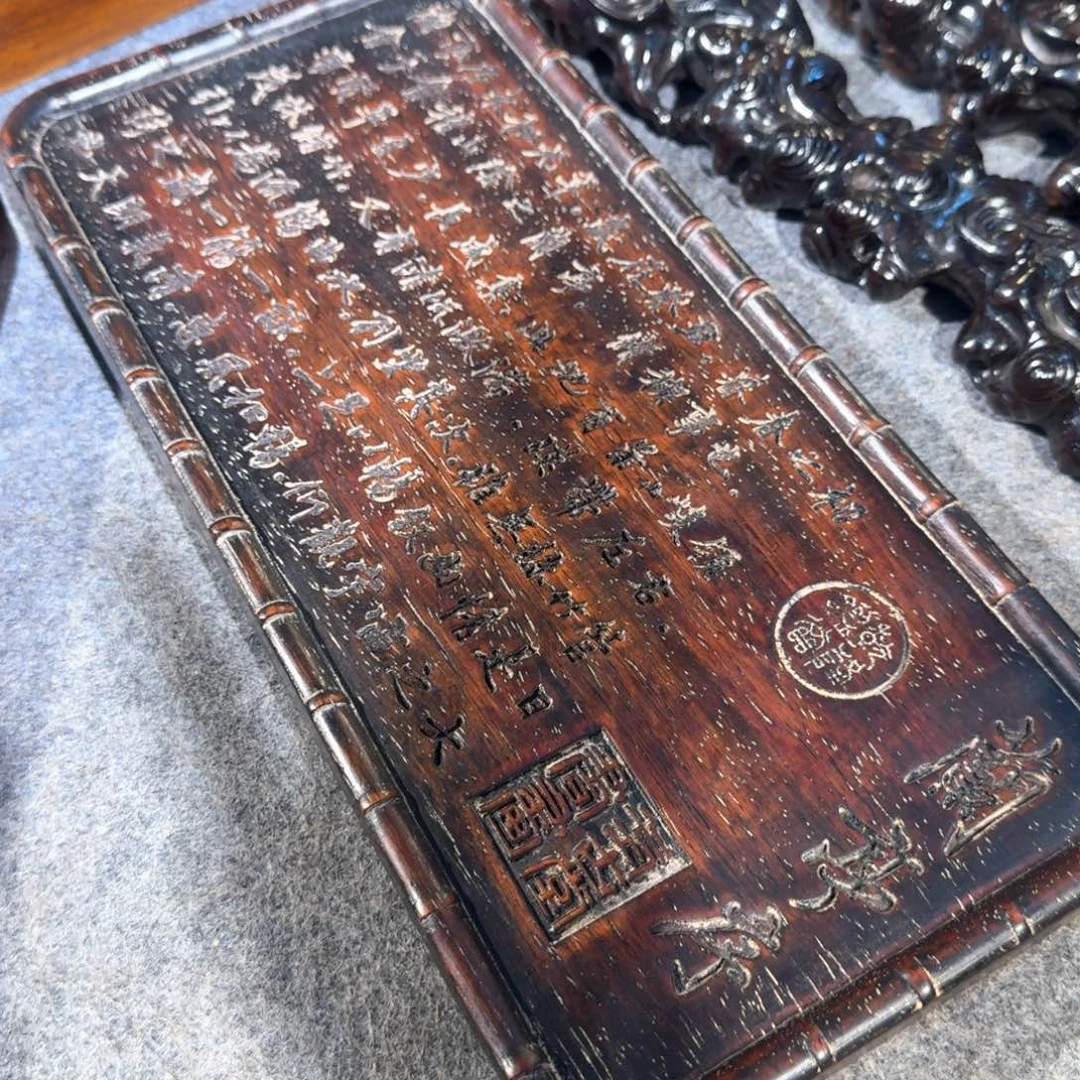 蘭亭序
永和九年,歲在癸丑,暮春之初
會于會稽山陰之蘭亭,脩禊事也。
群賢畢至,少長咸集。此地有崇山峻嶺
茂林脩竹,又有清流激湍,暎帶左右。
引以為流觴曲水,列坐其次。雖無絲竹管
弦之盛,一觴一詠,亦足以暢叙幽情。是日
也,天朗氣清,惠風和暢。仰觀宇宙之大